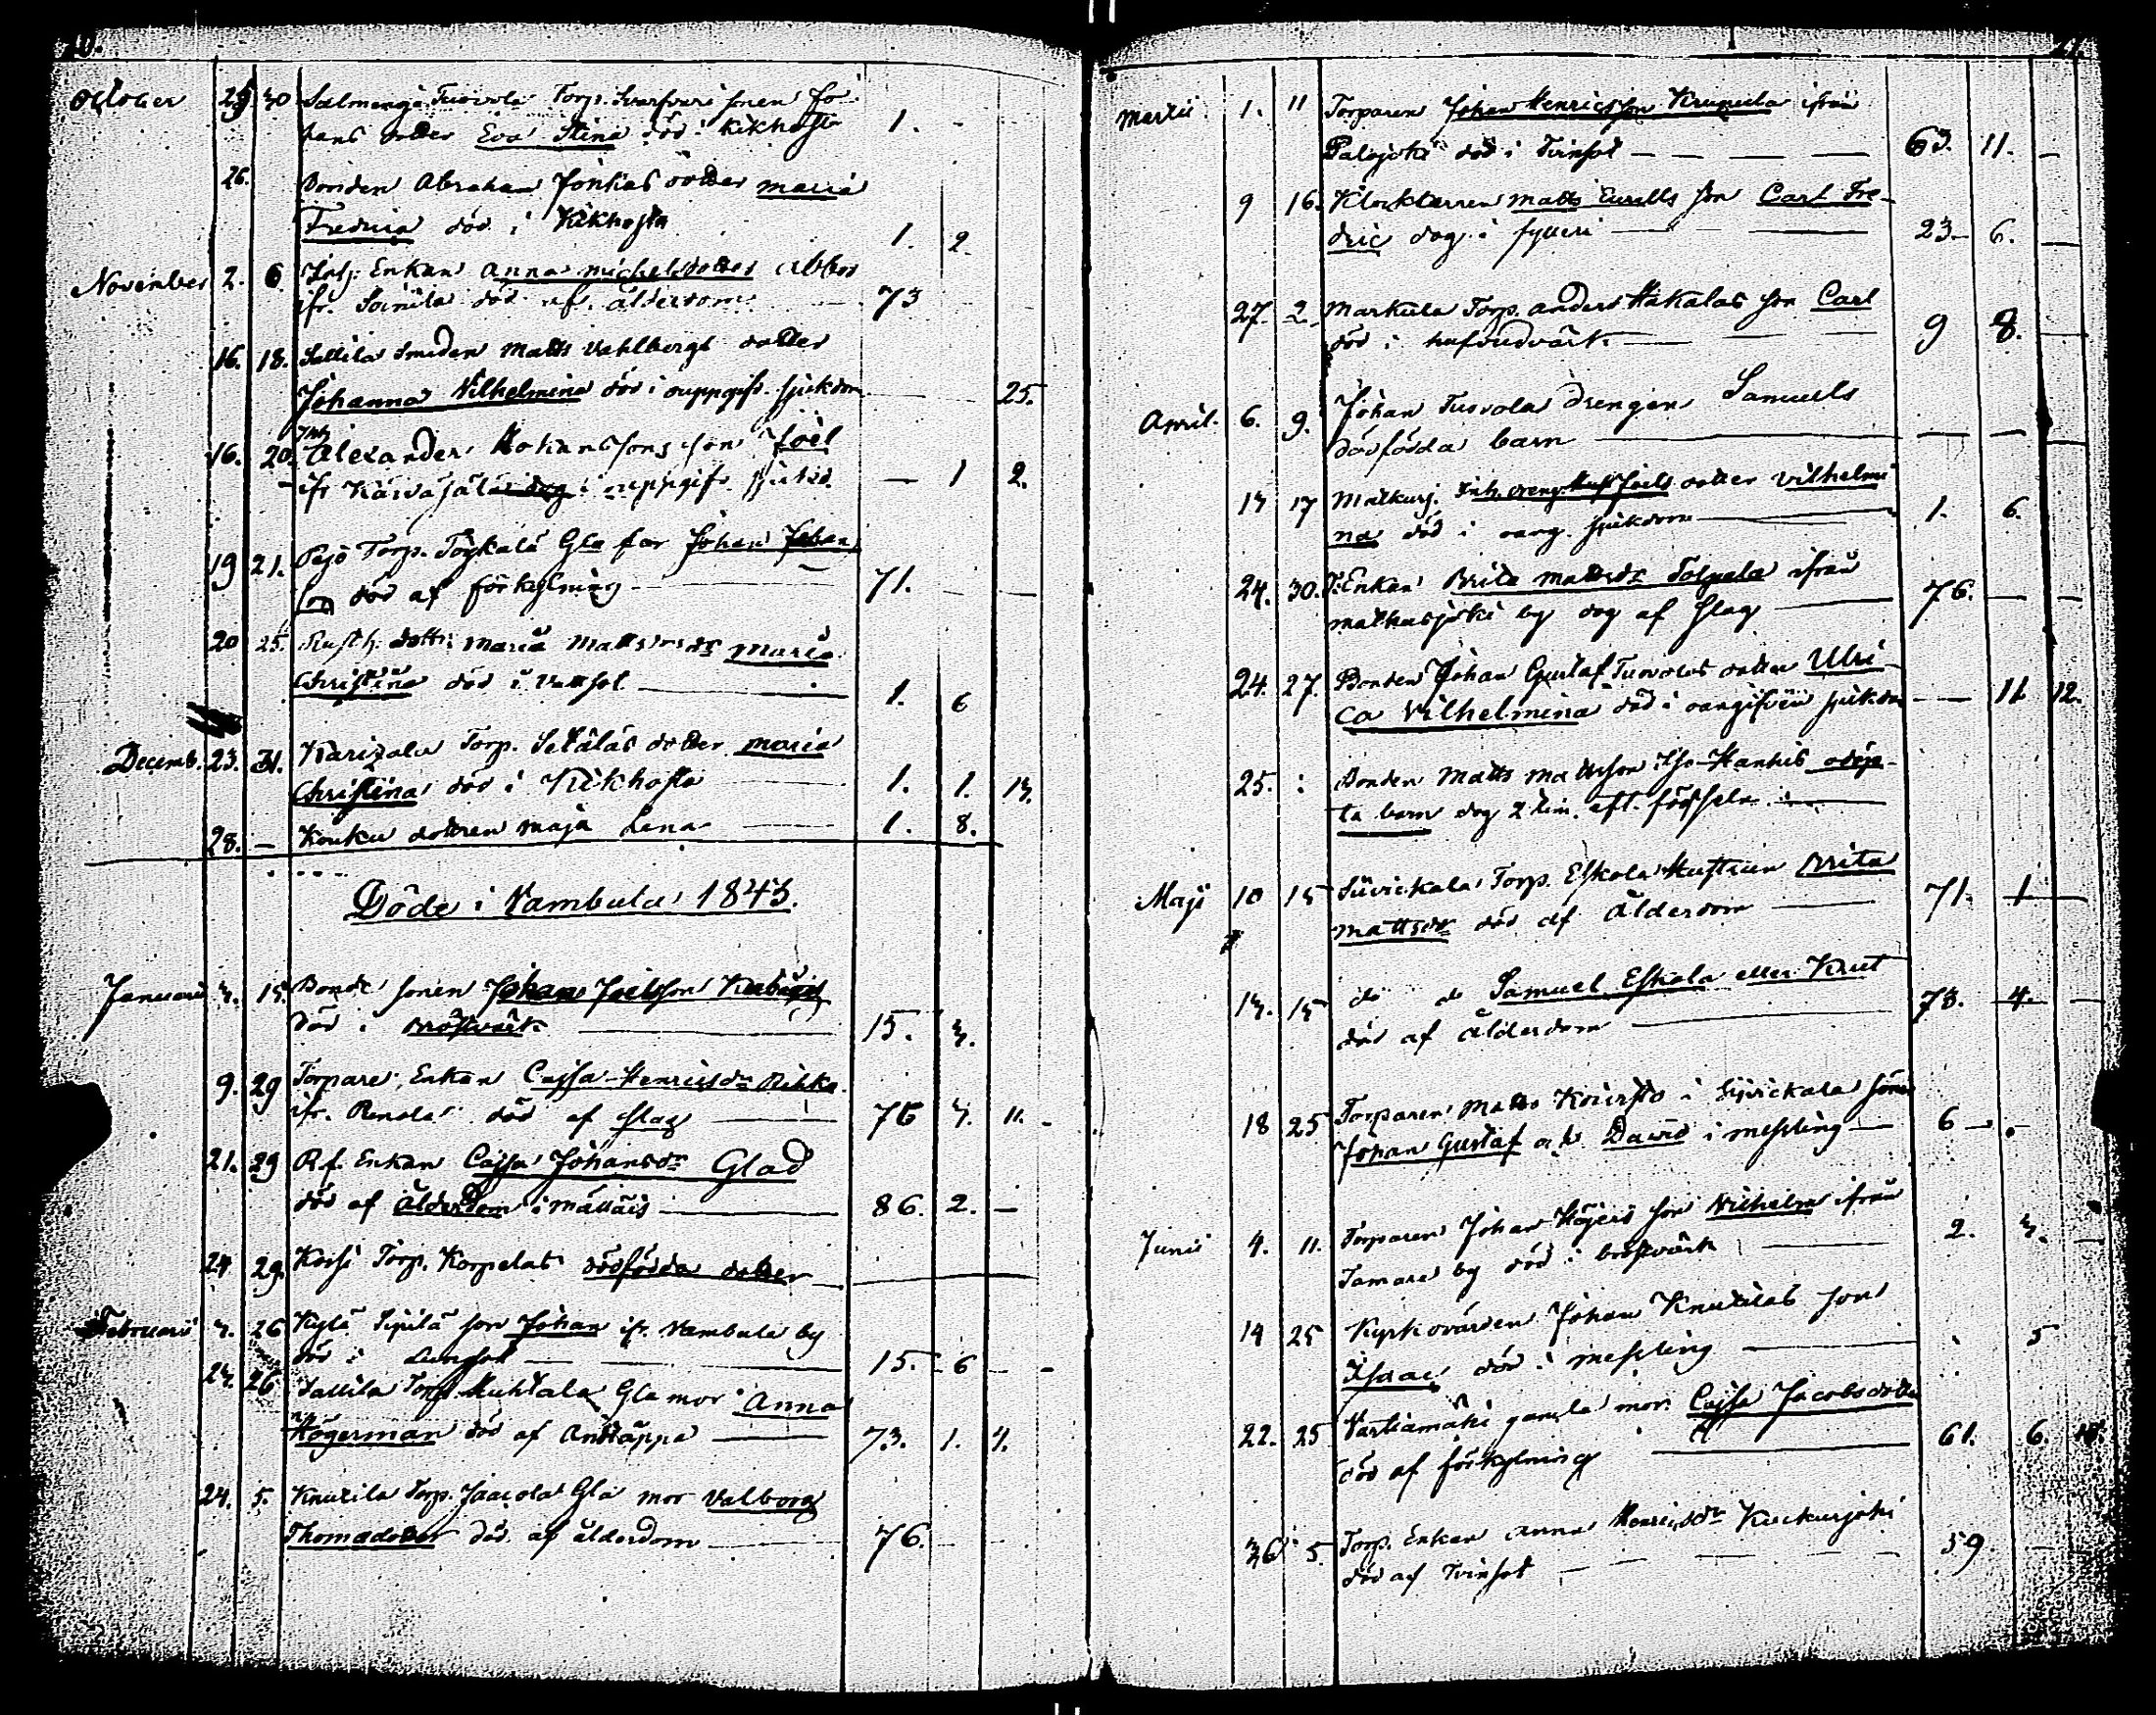 October 25 30 Salmenoja Tuovola Torp. Svarfvari sonen Jo
hans dotter Eva Stina död i kikhosta 1. -
26. Bonden Abraham Jonkas dotter Maria
Fredrica död i Kikhosta 1. 2.
November 2. 6. Inh. Enkan Anna Michelsdotter Abbor
ifr. död af ålderdom 73
16. 18. Sallila Smeden Matts Vahlbergs dotter
Johanna Vilhelmina död i ouppgifv. sjukdom 25.
16. 20. Inh Alexander Johanssons son Joel
ifr i ouppgifv. sjukd. - 1 2.
19 21. Pejo Torp. Töykälä Gla far Johan Johan
son död af förkylning 71.
20 25. dottr. Maria Mattsdrs Maria
Christina död i Vattsot 1. 6
Decemb. 23. 31. Torp. Setäläs dotter Maria
Christina död i Kikhosta 1. 1. 14.
28. - Kouku dottren Maja Lena 1. 8.
Döde i Vambula 1845.
Januarii 4. 15. Bonde sonen Johan Joelsson
död i Bröstvärk 15. 4.
9. 29 Torpare Enkan Cajsa Henricsdr Rikka
ifr. död af slag 76 4. 11.
21. 29 R.f. Enkan Cajsa Johansdr Glad
död af Ålderdom i 86. 2. -
24 29. Korsi Torp. Korpelas dödfödda dotter
Februarii 4. 26 Kylä Sipilä son Johan ifr. Vambula by
död i Lungsot 15. 6 -
24. 26 Sallila Torp. Huhtala Gla mor Anna
Högerman död af Andtäppa 73. 1. 4.
24. 5. Knuutila Torp. Jaacola Gla mor Valborg
Thomadotter död af ålderdom 76.
Martii 1. 11 Torparen Johan Henricsson Krupula ifrån
Palojoki död i Tvinsot 63. 11. -
9 16. Klockarren Matts Eurells son Carl Fre-
dric dog i fylleri 23. 6. -
27. 2. Markula Torp. Anders Hakalas son Carl
död i hufvudvärk 9 8. -
April. 6. 9. Johan Tuovolas Drengens Samuels
dödfödda barn
14 17 Matkusj. Inh. dreng Joels dotter Vilhelmi
na död i oang. sjukdom 1. 6.
24. 30. I. Enkan Brita Mattsdr ifrån
Matkusjoki by dog af slag 76.
24. 27. Bonden Johan Gustaf Tuovolas dotter Ulri-
ca Vilhelmina död i oangifven sjukdom - 11 12.
25. : Bonden Matts Mattsson Iso-Hankis odöp-
ta barn dog 2 tim. eft. födseln
Maji 10 15 Torp. Eskola Hustrun Brita
Mattsdr död af Ålderdom 71. 1
14. 15 do do Samuel Eskola eller Krut
död af Ålderdom 78. 4. -
18 25 Torparen Matts Koivisto i söner
Johan Gustaf och David i messling 6
Junii 4. 11. Torparen Johan Höjers son Vilhelm ifrån
Tamare by död i bröstvärk 2. 4. -
14 25 Kyrkovärden Johan Knutilas son
Isaac död i messling 5
22. 25 Vartiamäki gamla mor Cajsa Jacobsdotter
död af förkylning 61. 6.
26 5. Torp. Enkan Anna Henricsdr Kuckurjoki
död af Tvinsot 59.